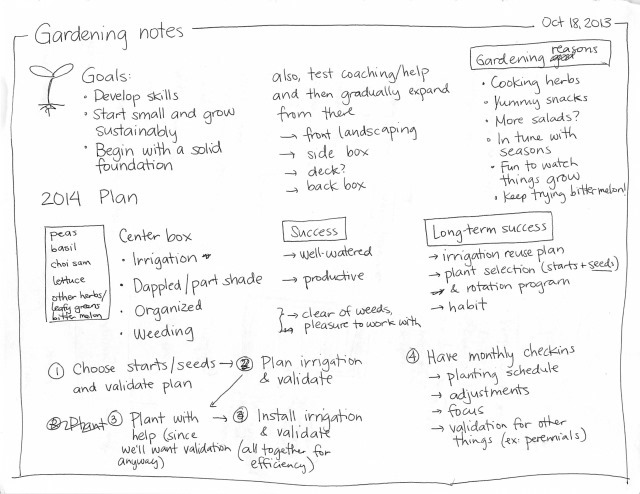 Gardening notes
Oct 18, 2013
Goals:
• Develop skills
• Start small and grow
sustainably
• Begin with a solid
foundation
also, test coaching/help
and then gradually expand
from there
→ front landscaping
→ side box
→ deck?
→ back box
Gardening reasons
• Cooking herbs
• Yummy snacks
• More salads?
• In tune with
seasons
• Fun to watch
things grow
• Keep trying bitter melon!
2014 Plan
peas
basil
choi sam
lettuce
other herbs/
leafy greens
bitter melon
Center box
• Irrigation
• Dappled/part shade
• Organized
• Weeding
Success
→ well-watered
→ productive
→ clear of weeds,
pleasure to work with
Long-term success
→ irrigation reuse plan
→ plant selection (starts + seeds)
& rotation program
→ habit
① Choose starts/seeds →
and validate plan
② Plan irrigation
& validate
② Plant
③ Plant with →
help (since
we'll want validation
anyway)
③ Install irrigation
& validate
(all together for
efficiency)
④ Have monthly checkins
→ planting schedule
→ adjustments
→ focus
→ validation for other
things (ex: perennials)